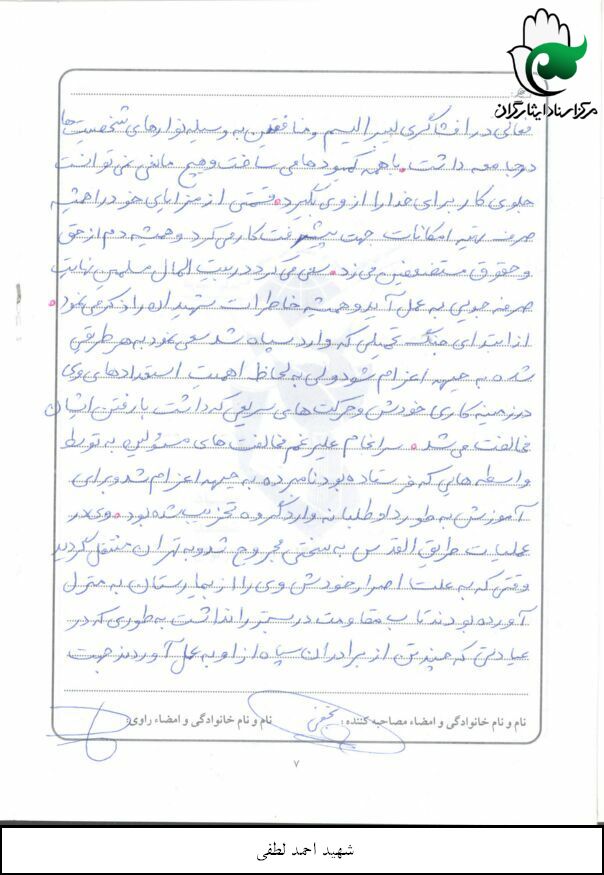 مرکز اسناد ایثارگران
فعالی در افشاگری لیبرالیسم و منافقین به وسیله نوارهای شخصیت‌ها
در جامعه داشت. با همه کمبودها می ساخت و هیچ مانعی نمی توانست
جلوی کار برای خدا را از وی بگیرد. قسمتی از مزایای خود را همیشه
صرف امکانات جهت پیشرفت کار می کرد و همیشه دم از حق
و حقوق مستضعفین می زد. سعی می کرد در بیت المال مسلمین نهایت
صرفه جویی به عمل آید و همیشه خاطرات شهیدان را ذکر می نمود.
از ابتدای جنگ تحمیلی که وارد سپاه شد سعی نمود به هر طریقی
شده به جبهه اعزام شود ولی به لحاظ اهمیت استعدادهای وی
در زمینه کاری خودش و حرکت های سریعی که داشت با رفتن ایشان
مخالفت می شد. سرانجام علیرغم مخالفت های مسئولین به توسط
واسطه هایی که فرستاده بود نامبرده به جبهه اعزام شد و برای
آموزش به طور داوطلبانه وارد گروه تخریب شده بود. وی در
عملیات طریق القدس به سختی مجروح شد و به تهران منتقل گردید
وقتی که به علت اصرار خودش وی را از بیمارستان به منزل
آورده بودند تاب مقاومت در بستر را نداشت به طوری که در
عیادتی که چند تن از برادران سپاه از او به عمل آوردند جهت
نام و نام خانوادگی و امضاء مصاحبه کننده:
نام و نام خانوادگی و امضاء راوی:
۷
شهید احمد لطفی